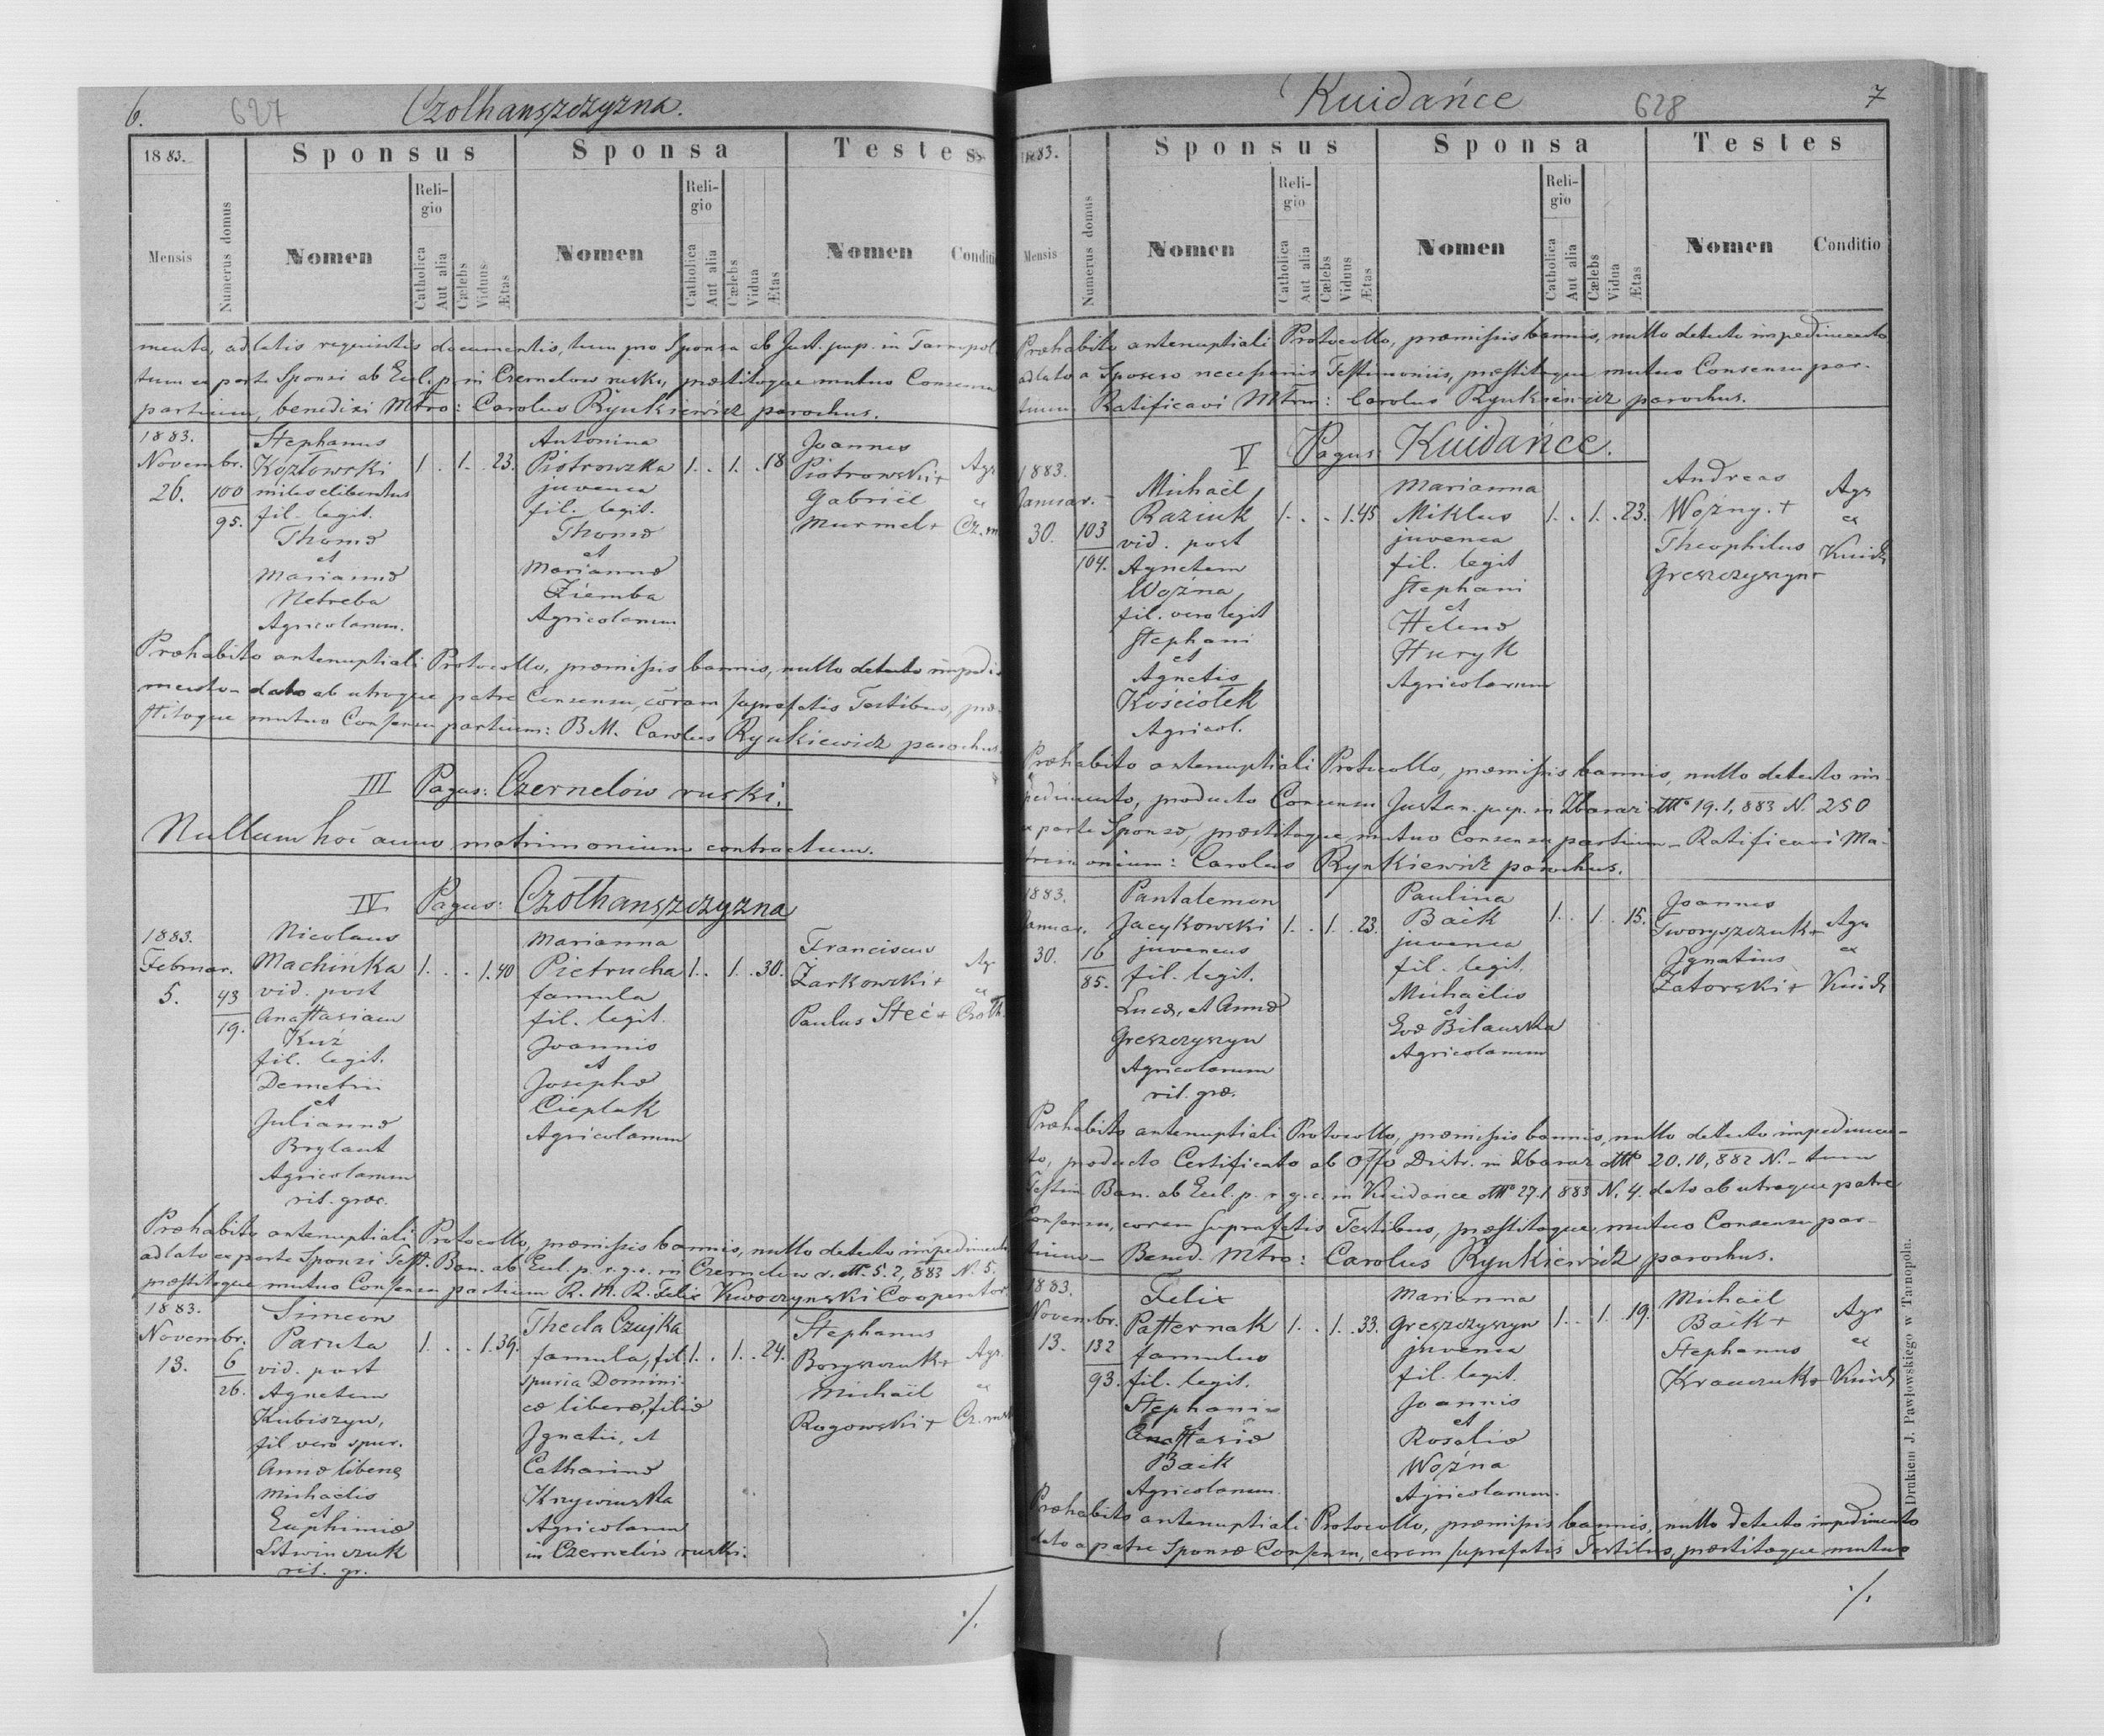 6.
627
Czołhanszczyzna.
1883.
Sponsus
Sponsa
Testes
Mensis
Numerus domus
Nomen
Religio
Catholica
Aut alia
Cælebs
Viduus
Ætas
Nomen
Religio
Catholica
Aut alia
Cælebs
Vidua
Ætas
Nomen
Conditio
mento, adlatis requisitis documentis, tum pro Sponsa ab Just. pup. in Tarnopol
tum ex parte Sponsi ab Eccl. p. in Czernelow rusk., præstitoque mutuo Consensu
partium, benedixi Mtro: Carolus Rynkiewicz parochus.
1883.
Novembr.
26.
100
95.
Stephanus
Kozłowski
miles
fil. legit.
Thomæ
et
Mariannæ
Netreba
Agricolarum.
1. . 1. . 23.
Antonina
Piotrowska
juvenca
fil. legit.
Thomæ
et
Mariannæ
Ziemba
Agricolarum
1. . 1. . 18
Joannes
Piotrowski +
Gabriël
Murmel +
Agr
ex
Cz. m
Præhabito antenuptiali Protocollo, præmissis bannis, nullo detecto impedi-
mento – dato ab utroque patre Consensu, coram suprafatis Testibus, præ-
stitoque mutuo Consensu partium: B.M. Carolus Rynkiewicz parochus.
III Pagus: Czernelów ruski.
Nullum hoc anno matrimonium contractum.
IV. Pagus: Czołhanszczyzna
1883.
Februar.
5.
43
19.
Nicolaus
Machińka
vid. post
Anastasiam
Kuź
fil. legit.
Demetrii
et
Juliannæ
Brylant
Agricolarum
rit. græc.
1. . . 1. 40
Marianna
Pietrucha
famula
fil. legit.
Joannis
et
Josephæ
Cieplak
Agricolarum
1. . 1. . 30.
Franciscus
Żarkowski +
Paulus Steć +
Agr
ex
Czołh.
Præhabito antenuptiali Protocollo, præmissis bannis, nullo detecto impedimento
adlato ex parte Sponsi Test. Ban. ab Eccl. p. r. g. c. in Czernelow r. dtt. 5. 2, 883 N. 5.
præstitoque mutuo Consensu partium R. M. R. Felix Kwoczynski Cooperator.
1883.
Novembr.
13.
6
26.
Simeon
Paruta
vid. post
Agnetem
Kubiszyn,
fil vero spur.
Annæ liberæ
Michaëlis
et
Euphimiæ
Litwinczuk
rit. gr.
1. . . 1. 39.
Thecla Czujka
famula, fil.
spuria Domini-
cæ liberæ, filiæ
Ignatii, et
Catharinæ
Krzywinska
Agricolarum
in Czernelów ruski.
1. . 1. . 24.
Stephanus
Boryszczuk +
Michaël
Rogowski +
Agr.
ex
Cz. rusk
./.
Kuidańce
628
7
1883.
Sponsus
Sponsa
Testes
Mensis
Numerus domus
Nomen
Religio
Catholica
Aut alia
Cælebs
Viduus
Ætas
Nomen
Religio
Catholica
Aut alia
Cælebs
Vidua
Ætas
Nomen
Conditio
Præhabito antenuptiali Protocollo, præmissis bannis, nullo detecto impedimento
adlato a Sponso necessariis Testimoniis, præstitoque mutuo Consensu par-
tium. Ratificavi Mtrm: Carolus Rynkiewicz parochus.
V Pagus Kuidańce.
1883.
Januar.
30.
103
104.
Michaël
Raziuk
vid. post
Agnetem
Woźna
fil. vero legit
Stephani
et
Agnetis
Kościołek
Agricol.
1. . . 1. 45
Marianna
Miklus
juvenca
fil. legit
Stephani
et
Helenæ
Huryk
Agricolarum
1. . 1. . 23.
Andreas
Woźny. +
Theophilus
Greszczyszyn +
Agr
ex
Kuid
Præhabito antenuptiali Protocollo, præmissis bannis, nullo detecto im-
pedimento, producto Consensu Justan. pup. in Zbaraz dtto 19. 1, 883 N. 250
ex parte Sponsæ, præstitoque mutuo Consensu partium – Ratificavi Ma-
trimonium: Carolus Rynkiewicz parochus.
1883.
Januar.
30.
16
85.
Pantalemon
Jacykowski
juvencus
fil. legit.
Lucæ, et Annæ
Greszczyszyn
Agricolarum
rit. græ.
1. . 1. . 23.
Paulina
Baik
juvenca
fil. legit.
Michaëlis
et
Evæ Bilauska
Agricolarum
1. . 1. . 15.
Joannes
Tworyszczuk +
Ignatius
Zatorski +
Agr
ex
Kuid
Præhabito antenuptiali Protocollo, præmissis bannis, nullo detecto impedimen-
to, producto Certificato ab Offo Distr. in Zbaraz dtto 20. 10, 882 N. – tum
Testim Ban. ab Eccl. p. r. g. c. in Kuidance dtto 27. 1 883 N. 4. dato ab utroque patre
Consensu, coram suprafatis Testibus, præstitoque mutuo Consensu par-
tium – Bened. Mtro: Carolus Rynkiewicz parochus.
1883.
Novembr.
13.
132
93.
Felix
Pasternak
famulus
fil. legit.
Stephani
et
Anastasiæ
Baik
Agricolarum.
1. . 1. . 33.
Marianna
Greszczyszyn
juvenca
fil. legit.
Joannis
et
Rosaliæ
Woźna
Agricolarum.
1. . 1. 19.
Michaël
Baik +
Stephanus
Krawczuk +
Agr
ex
Kuid
Præhabito antenuptiali Protocollo, præmissis bannis, nullo detecto impedimento
dato a patre Sponsæ Consensu, coram suprafatis Testibus, præstitoque mutuo
./.
Drukiem J. Pawłowskiego w Tarnopolu.